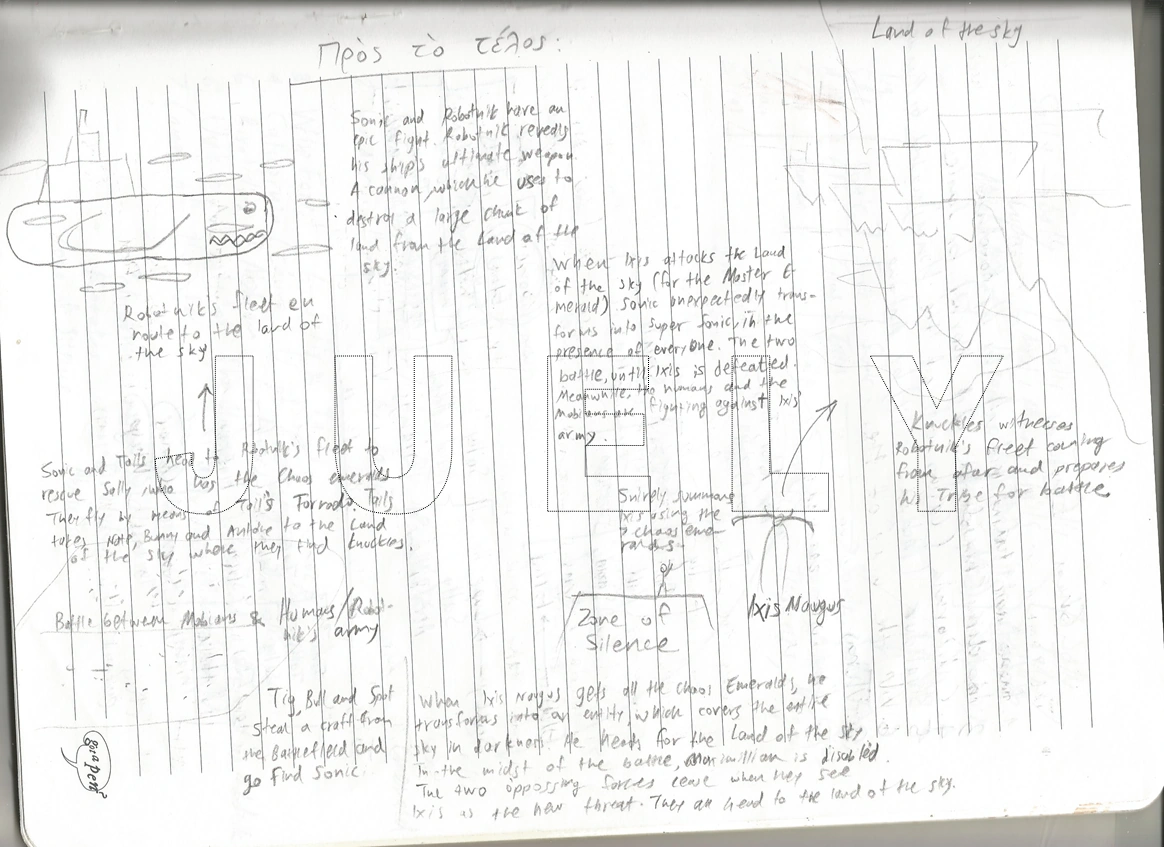 Πρὸς τὸ τέλος:
Land of the sky
Sonic and Robotnik have an
epic fight. Robotnik reveals
his ship's ultimate weapon.
A cannon, which he uses to
destroy a large chunk of
land from the Land of the
sky.
When Ixis attacks the Land
of the sky (for the Master E-
merald) Sonic unexpectedly trans-
forms into Super Sonic, in the
presence of everyone. The two
battle, until Ixis is defeated.
Meanwhile, the humans and the
Mobians are fighting against Ixis'
army.
Robotnik's fleet en
route to the land of
the sky
JUELY
Knuckles witnesses
Robotnik's fleet coming
from afar and prepares
his Tribe for battle.
Sonic and Tails head to Robotnik's fleet to
rescue Sally, who has the Chaos emeralds
They fly by means of Tails's Tornado. Tails
takes Nate, Bunny and Antoine to the Land
of the sky where they find Knuckles.
Snively summons
Ixis using the
7 chaos eme-
ralds-
Battle between Mobians & Humans/Robot-
nik's army
Zone of
Silence
Ixis Naugus
Tig, Bull and Spot
steal a craft from
the Battlefield and
go find Sonic.
When Ixis Naugus gets all the Chaos Emeralds, he
transforms into an entity, which covers the entire
sky in darkness. He heads for the Land of the sky
In the midst of the battle, Maximillian is disabled.
The two oppossing forces cease when they see
Ixis as the new threat. They all head to the land of the sky.
gota pen?